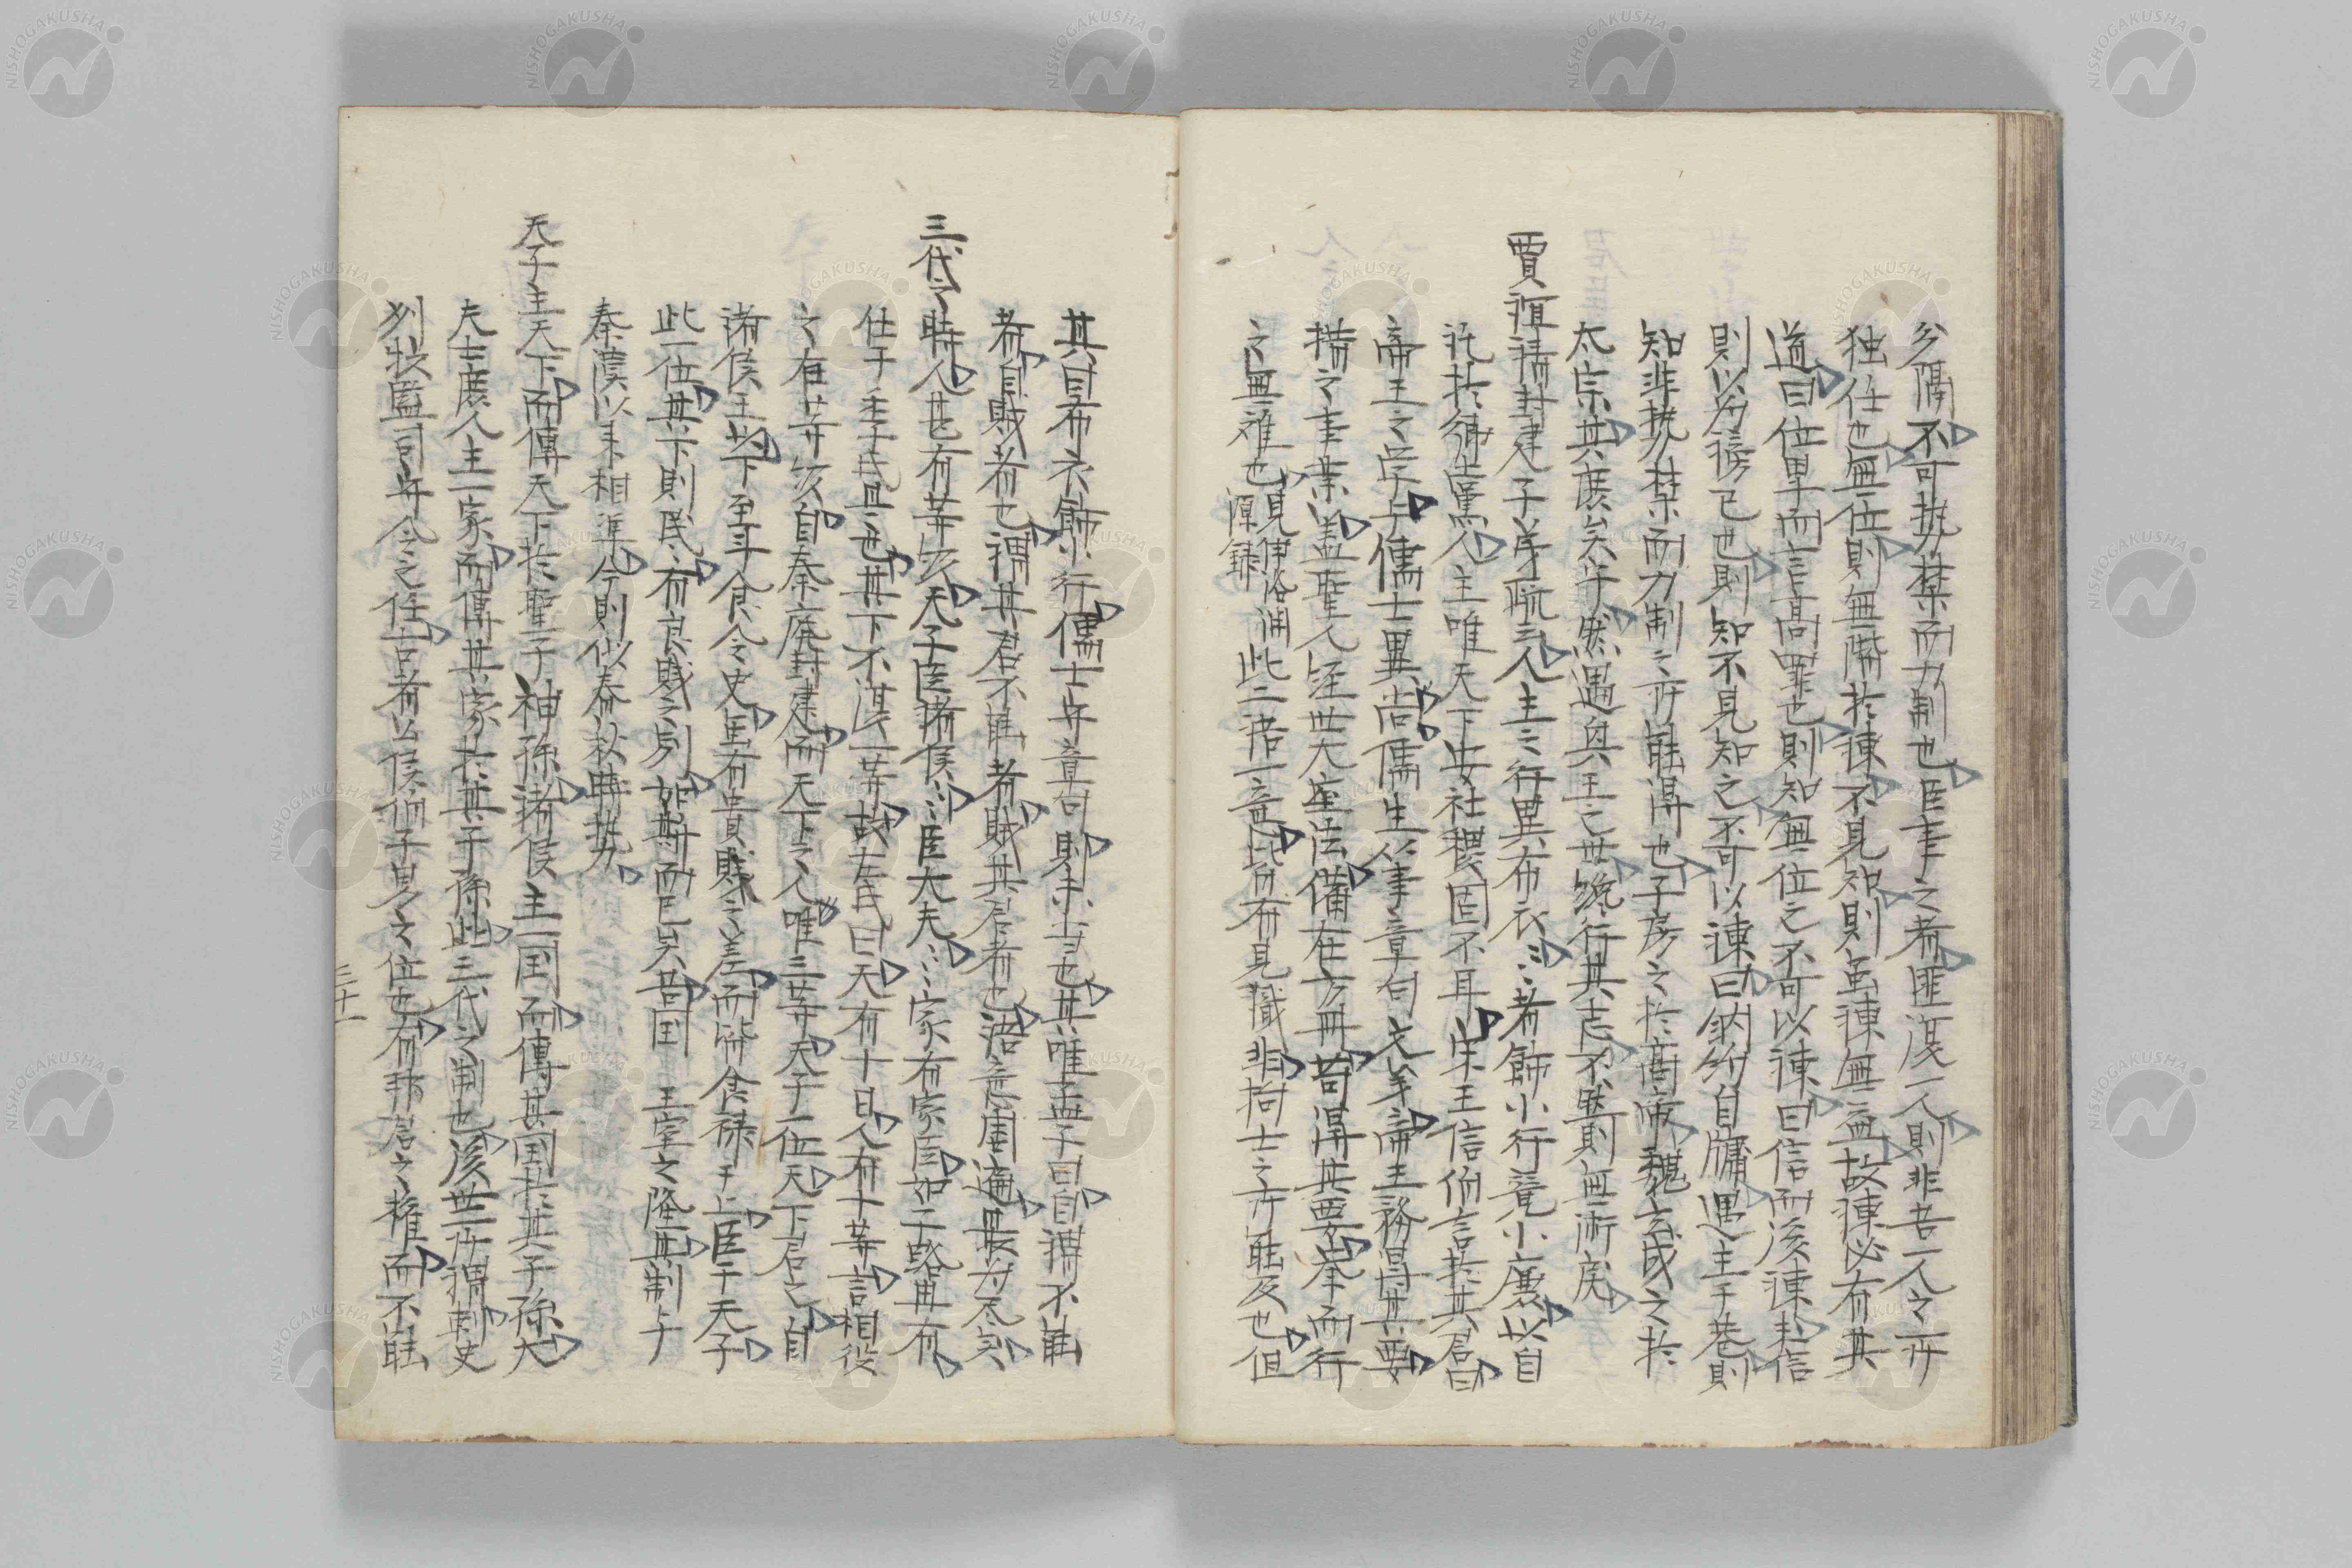 分隔不可埶禁而力制也臣事之者匪湜一人則非吾一人之所
独任也無位則無階於諫不見知則虽諫無益故諫必有其
道曰位卑而言高罪也則知無位之不可以諫曰信而後諫未信
則以为謗己也則知不見知之不可以諫曰納約自牖遇主于巷則
知非埶禁而力制之所能得也子房之於高帝魏玄成之於
太宗其庶矣乎然遇奥王之世纔行其志不然則無術矣
賈誼請封建子弟疏云人主之行異布衣〻〻者飾小行竟小廉以自
託於郷党人主唯天下安社稷固不耳宋王信伯言於其君曰
帝王之学与儒士異尚儒生從事章句文字帝王務得其要
措之事業盖聖人経世大㳒備在方冊苟得其要挙而行
之無難也見伊洛渊源録此二語一意皆有見識非拘士之所能及也但
其曰布衣飾小行儒士守章句則未尽也其唯孟子曰自謂不能
者自賊者也謂其君不能者賊其君者也語意周遍最为尽矣
三代之時人甚有等級天子臣諸侯〻〻臣大夫〻〻家有家臣如子路冉有
仕于季氏是也其下不湜一等故左氏曰天有十日人有十等言相役
之有等级自秦廃封建而天下之人唯三等天子一位天下君之自
諸侯王以下至斗食令史虽有貴賤之差而斉食禄于上臣于天子
此一位其下則民有良賤之別如斯而已矣昔国 王室之隆其制与
秦漢以来相準今則似春秋時埶
天子主天下而傳天下於聖子神孫諸侯主一国而傳其国於其子孫大
夫士庶人主一家而傳其家於其子孫此三代之制也後世所謂刺史
列牧監司守令之任古者公侯伯子男之位也有邦君之権而不能
三十一